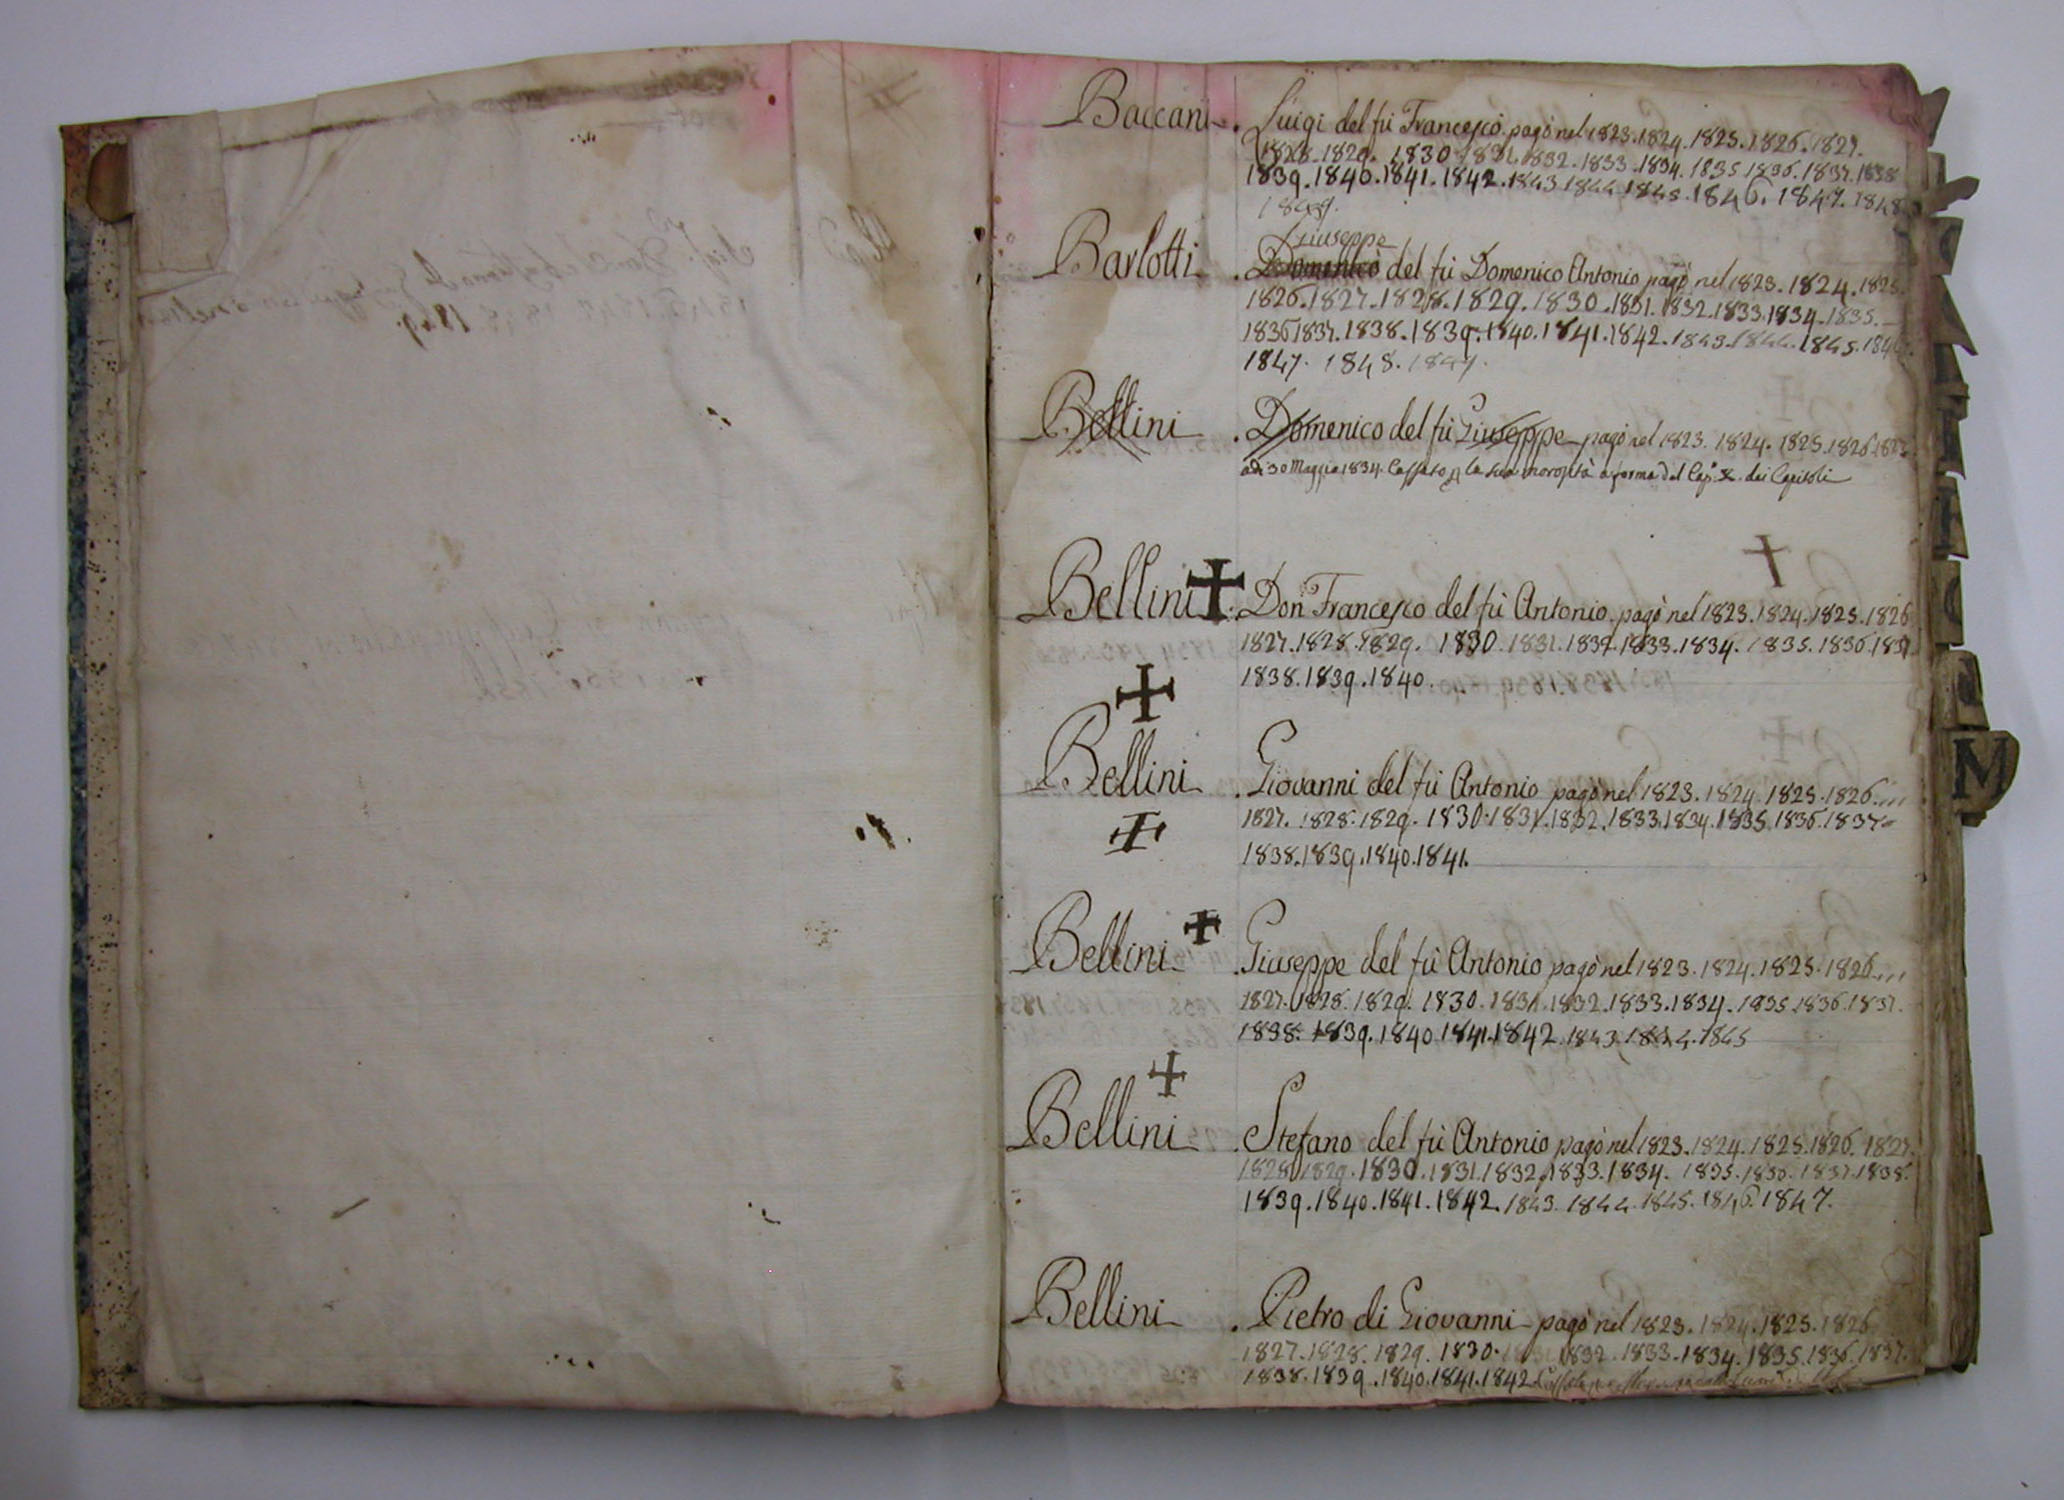 Baccani. Luigi del fù Francesco pagò nel 1823. 1824. 1825. 1826. 1827.
1828. 1829. 1830. 1831. 1832. 1833. 1834. 1835. 1836. 1837. 1838
1839. 1840. 1841. 1842. 1843. 1844. 1845. 1846. 1847. 1848
1849.
Giuseppe
Barlotti. Domenico del fù Domenico Antonio pagò nel 1823. 1824. 1825.
1826. 1827. 1828. 1829. 1830. 1831. 1832. 1833. 1834. 1835.
1836 1837. 1838. 1839. 1840. 1841. 1842. 1843. 1844. 1845. 1846.
1847. 1848. 1849.
Bellini. Domenico del fù Giuseppe pagò nel 1823. 1824. 1825. 1826. 1827.
adi 30 Maggio 1834. Cassato la sua morosità a forma del Cap.º dei Capitoli
Bellini. Don Francesco del fù Antonio pagò nel 1823. 1824. 1825. 1826
1827. 1828. 1829. 1830. 1831. 1832. 1833. 1834. 1835. 1836. 1837.
1838. 1839. 1840.
Bellini. Giovanni del fù Antonio pagò nel 1823. 1824. 1825. 1826.
1827. 1828. 1829. 1830. 1831. 1832. 1833. 1834. 1835. 1836. 1837
1838. 1839. 1840. 1841.
Bellini. Giuseppe del fù Antonio pagò nel 1823. 1824. 1825. 1826
1827. 1828. 1829. 1830. 1831. 1832. 1833. 1834. 1835. 1836. 1837.
1838. 1839. 1840. 1841. 1842. 1843. 1844. 1845
Bellini. Stefano del fù Antonio pagò nel 1823. 1824. 1825. 1826. 1827.
1828. 1829. 1830. 1831. 1832. 1833. 1834. 1835. 1836. 1837. 1838.
1839. 1840. 1841. 1842. 1843. 1844. 1845. 1846. 1847.
Bellini. Pietro di Giovanni pagò nel 1823. 1824. 1825. 1826
1827. 1828. 1829. 1830. 1831. 1832. 1833. 1834. 1835. 1836. 1837.
1838. 1839. 1840. 1841. 1842
M